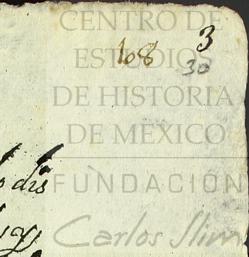 CENTRO DE
3
ESTUDIOS
108
30
DE HISTORIA
DE MEXICO
FUNDACIÓN
Carlos Slim